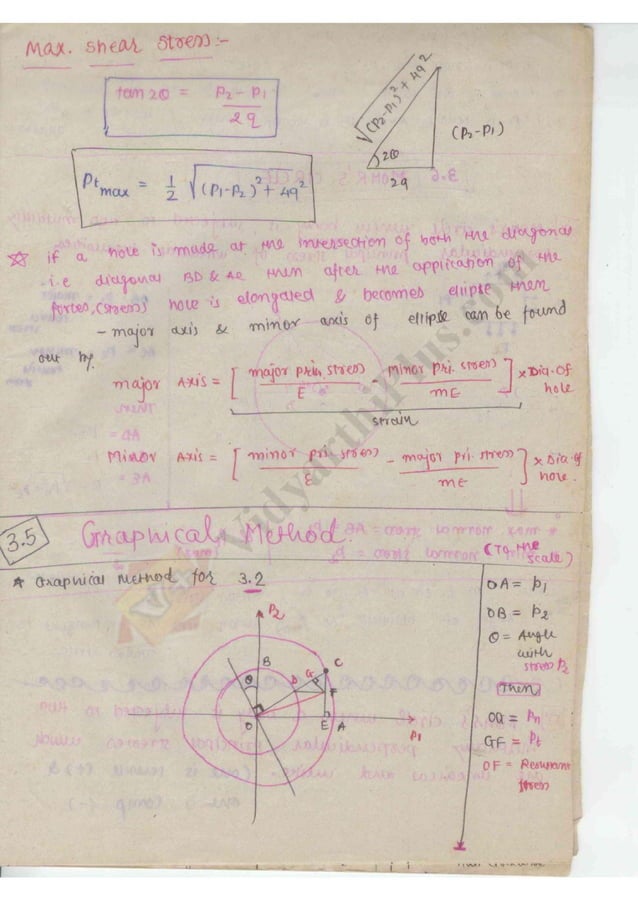 Max. shear stress:-
tan 2θ = P2 - P1 / 2q
√(P2-P1)² + 4q²
(P2-P1)
2θ
2q
Pt max = 1/2 √(P1-P2)² + 4q²
☆ if a hole is made at the intersection of both the diagonal
i.e diagonal BD & AE then after the application of the
forces, (stress) hole is elongated & becomes ellipse then
- major axis & minor axis of ellipse can be found
out by.
major Axis = [ major prin. stress / E - minor pri. stress / mE ] x Dia. of hole
strain
Minor Axis = [ minor pri. stress / E - major pri. stress / mE ] x Dia. of hole.
3.5
Graphical Method:
(To the scale)
* Graphical method for 3.2
P2
B
C
D
G
F
θ
O
E
A
P1
OA = P1
OB = P2
θ = Angle with stress P2
Then
OG = Pn
GF = Pt
OF = Resultant stress
VidyarthiPlus.com